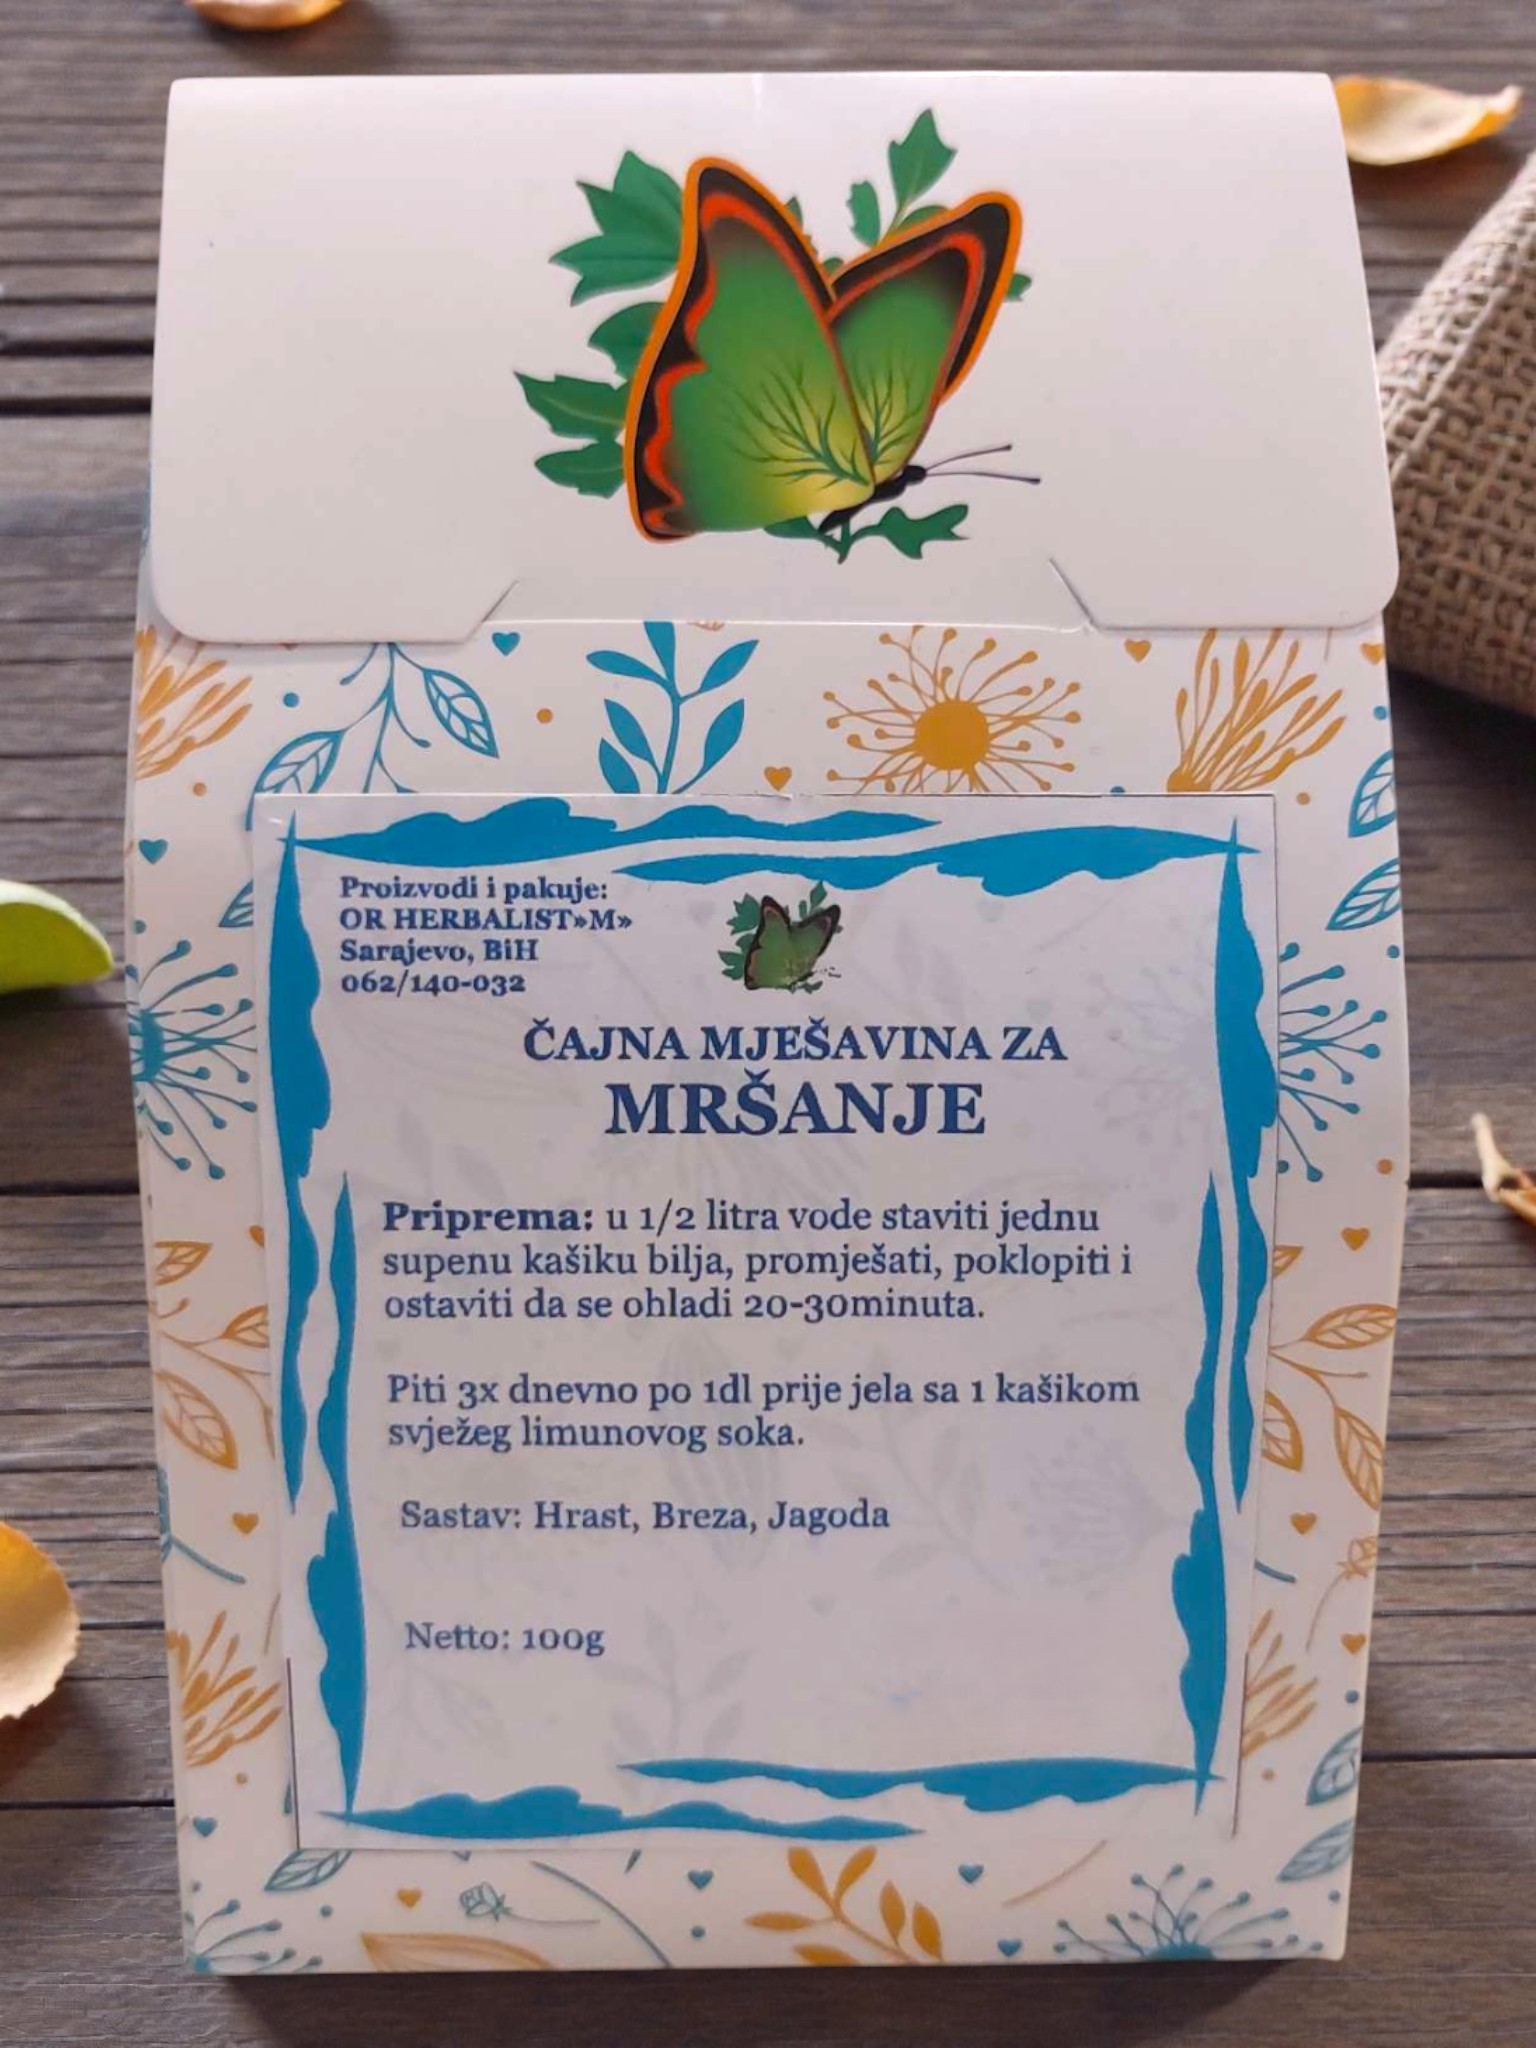 Proizvodi i pakuje:
OR HERBALIST»M»
Sarajevo, BiH
062/140-032
ČAJNA MJEŠAVINA ZA
MRŠANJE
Priprema: u 1/2 litra vode staviti jednu
supenu kašiku bilja, promješati, poklopiti i
ostaviti da se ohladi 20-30minuta.
Piti 3x dnevno po 1dl prije jela sa 1 kašikom
svježeg limunovog soka.
Sastav: Hrast, Breza, Jagoda
Netto: 100g